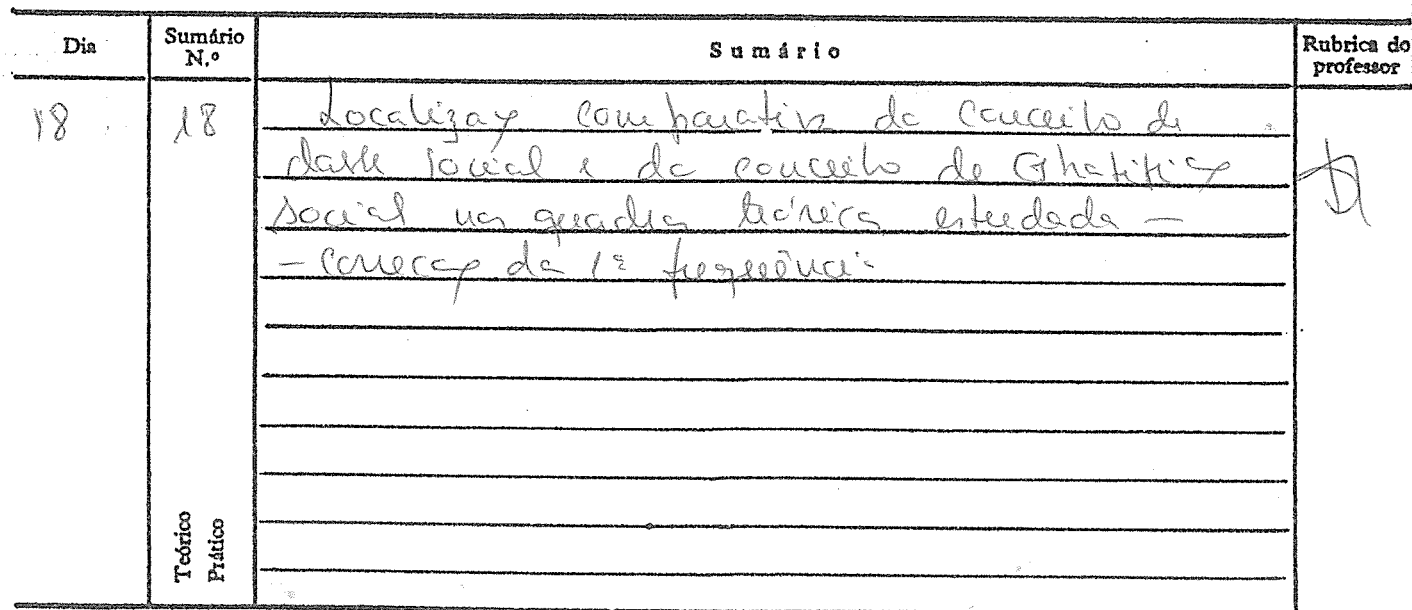 Dia
Sumário
N.º
Sumário
Rubrica do
professor
18
18
Localização comparativa do conceito de
classe social e do conceito de Estratificação
social nos quadros teóricos estudados —
— Correcção da 1ª frequência
Teórico
Prático